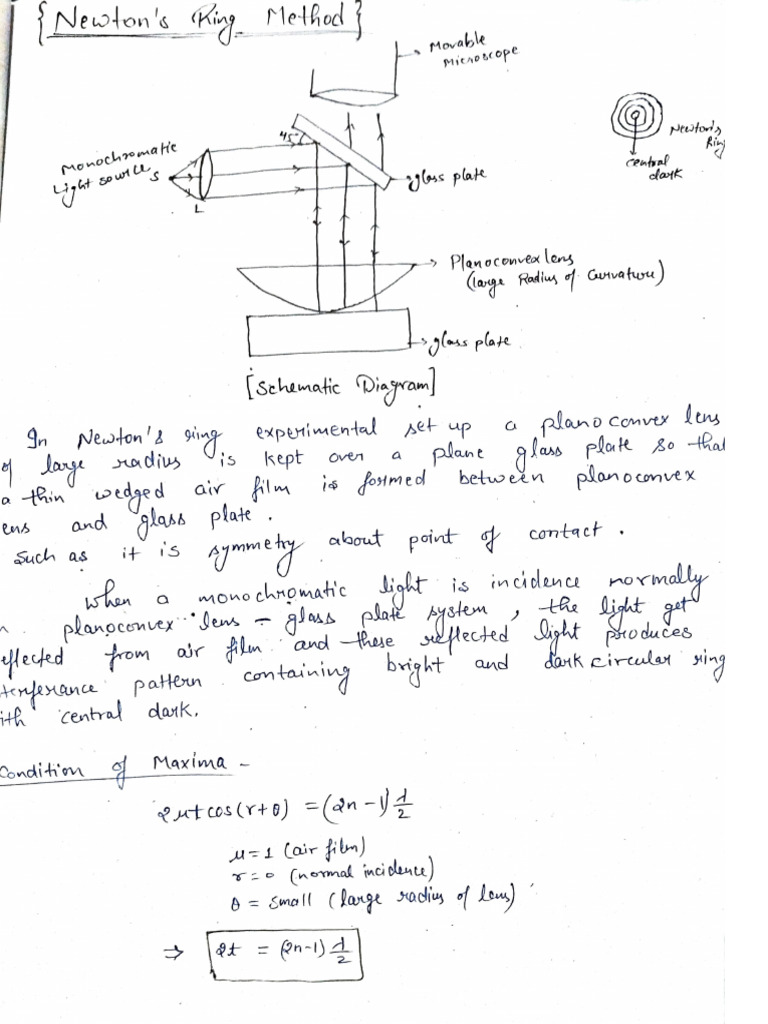 {Newton's Ring Method}
Movable
Microscope
45°
Monochromatic
Light source S
L
glass plate
Newton's
Ring
central
dark
Planoconvex lens
(large Radius of Curvature)
glass plate
[Schematic Diagram]
In Newton's ring experimental set up a plano convex lens
of large radius is kept over a plane glass plate so that
a thin wedged air film is formed between planoconvex
ens and glass plate.
Such as it is symmetry about point of contact.
when a monochromatic light is incidence normally
n planoconvex lens - glass plate system, the light get
eflected from air film and these reflected light produces
terferance pattern containing bright and dark circular ring
ith central dark.
Condition of Maxima -
2μt cos(r+θ) = (2n-1) λ/2
μ=1 (air film)
r=0 (normal incidence)
θ = small (large radius of lens)
⇒ 2t = (2n-1) λ/2